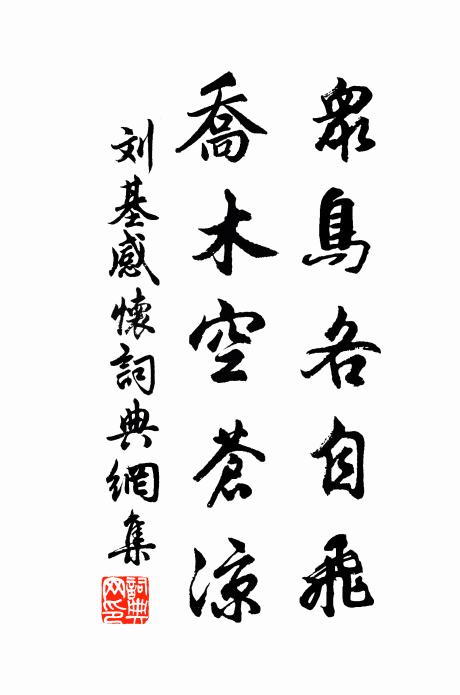 眾鳥各自飛
喬木空蒼涼
刘基感懷詞典網集
詞典網印